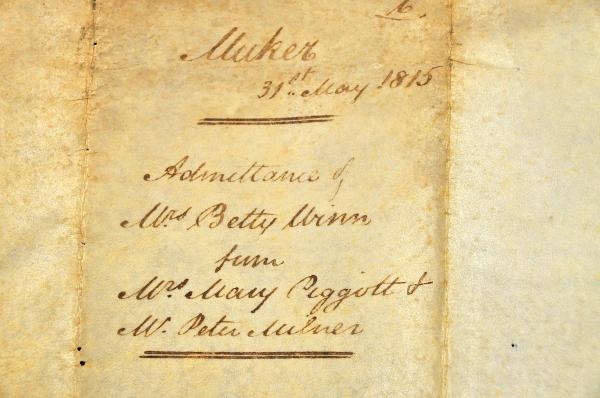 6.
Muker
31st May 1815
Admittance of
Mrs Betty Winn
from
Mrs Mary Piggott &
Mr Peter Milner